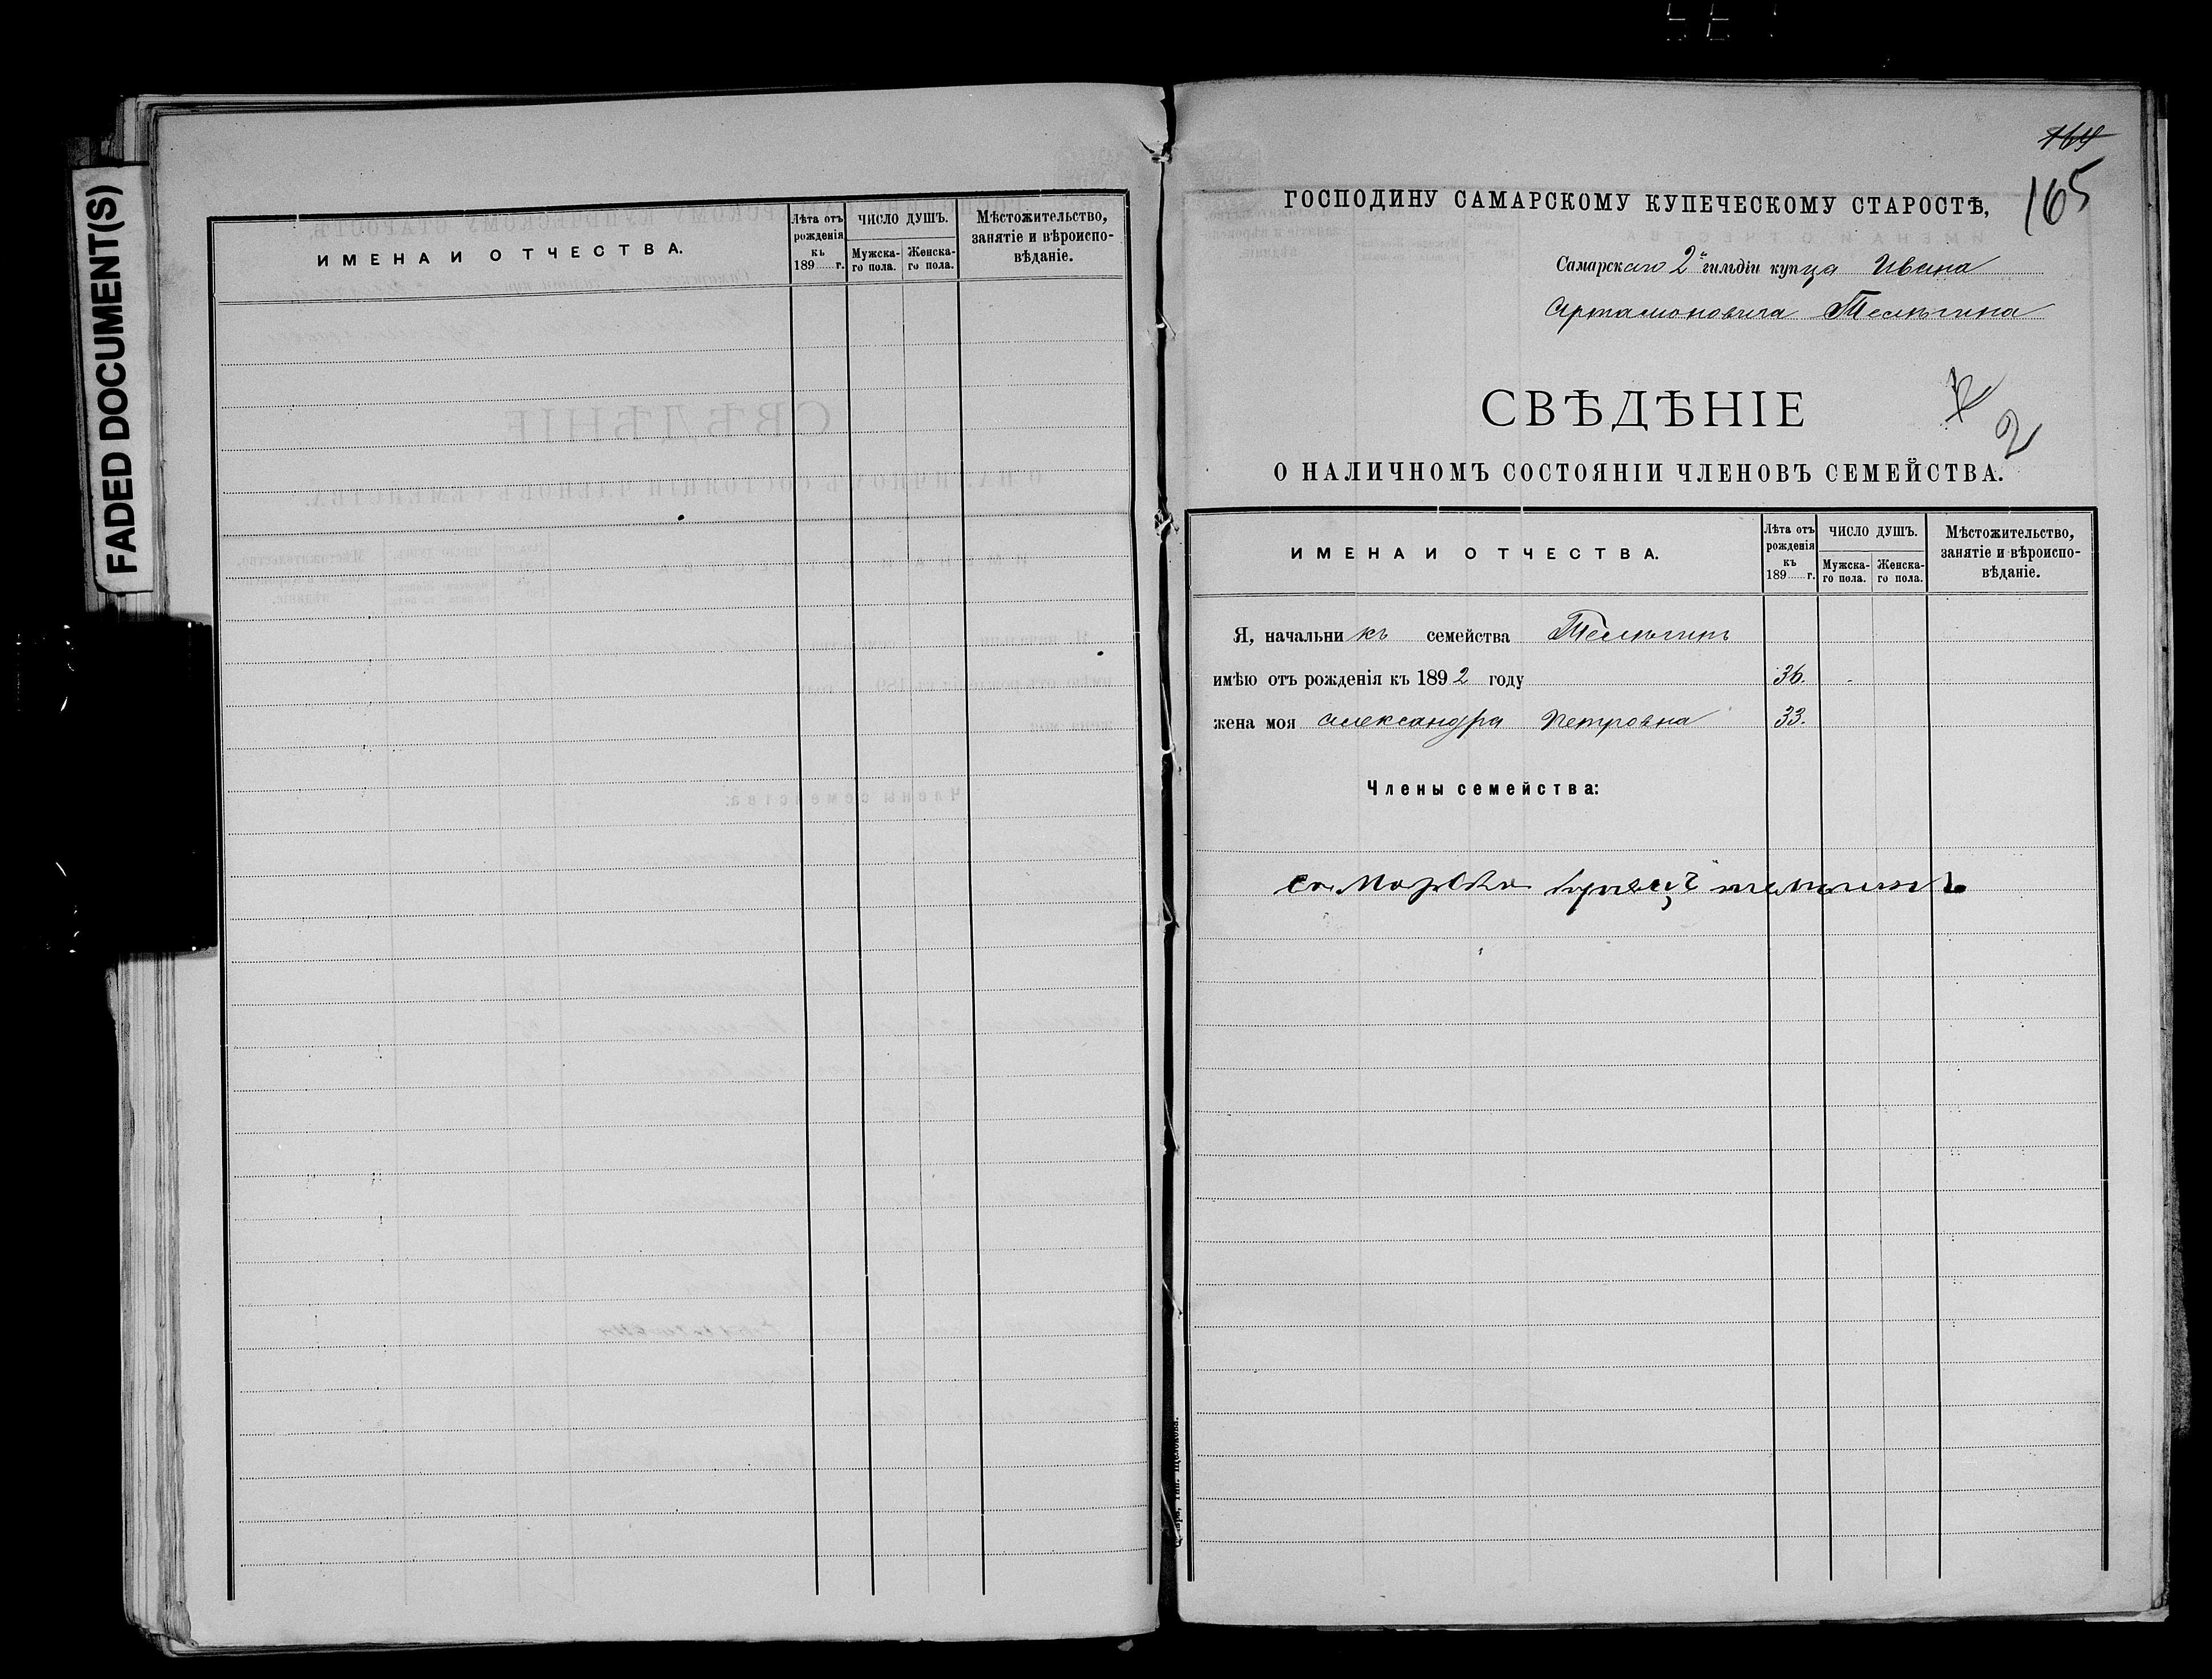 FADED DOCUMENT(S)
ИМЕНА И ОТЧЕСТВА.
Лѣта отъ рожденія къ 189 г.
ЧИСЛО ДУШЪ.
Мужска-го пола.
Женска-го пола.
Мѣстожительство, занятіе и вѣроиспо-вѣданіе.
164
165
ГОСПОДИНУ САМАРСКОМУ КУПЕЧЕСКОМУ СТАРОСТѢ,
Самарскаго 2й гильдіи купца Ивана
Артамоновича Телѣгина
СВѢДѢНІЕ
2
О НАЛИЧНОМЪ СОСТОЯНІИ ЧЛЕНОВЪ СЕМЕЙСТВА.
ИМЕНА И ОТЧЕСТВА.
Лѣта отъ рожденія къ 189 г.
ЧИСЛО ДУШЪ.
Мужска-го пола.
Женска-го пола.
Мѣстожительство, занятіе и вѣроиспо-вѣданіе.
Я, начальникъ семейства Телѣгинъ
имѣю отъ рожденія къ 1892 году 36.
жена моя Александра Петровна 33.
Члены семейства:
купецъ